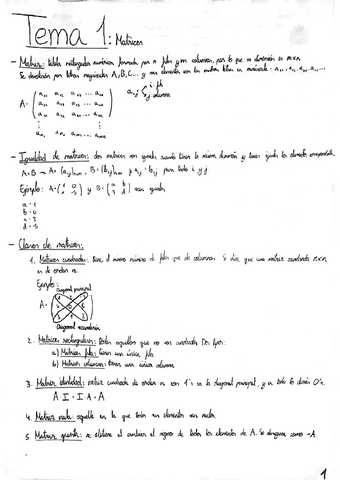 Tema 1: Matrices
- Matriz: tabla rectangular numérica formada por m filas y n columnas, por lo que su dimensión es m×n.
Se denotarán por letras mayúsculas A, B, C... y sus elementos con la misma letra en minúscula: a₁₁, a₁₂, a₁₃, a₁₄...
A = (a₁₁ a₁₂ a₁₃ ... a₁ₙ
aᵢⱼ i fila
j columna
- Igualdad de matrices: dos matrices son iguales cuando tienen la misma dimensión y tienen iguales los elementos
A = B → A = (aᵢⱼ)ₘₓₙ, B = (bᵢⱼ)ₘₓₙ y aᵢⱼ = bᵢⱼ para todo i y j
Ejemplo: A = (1 0 / 3 -5) y B = (a b / c d) son iguales
a = 1
b = 0
d = -5
- Clases de matrices:
1. Matrices cuadradas: tiene el mismo número de filas que de columnas. Se dice que una matriz cuadrada n×n
es de orden n.
Ejemplo: Diagonal principal
A =
Diagonal secundaria
2. Matrices rectangulares: todas aquellas que no son cuadradas. Dos tipos:
a) Matrices fila: tienen una única fila
b) Matrices columna: tienen una única columna
3. Matriz identidad: matriz cuadrada de orden n con 1's en la diagonal principal, y en todo lo demás 0's.
A·I = I·A = A
4. Matriz nula: aquella en la que todos sus elementos son nulos.
5. Matriz opuesta: se obtiene al cambiar el signo de todos los elementos de A. Se designa como -A.
1